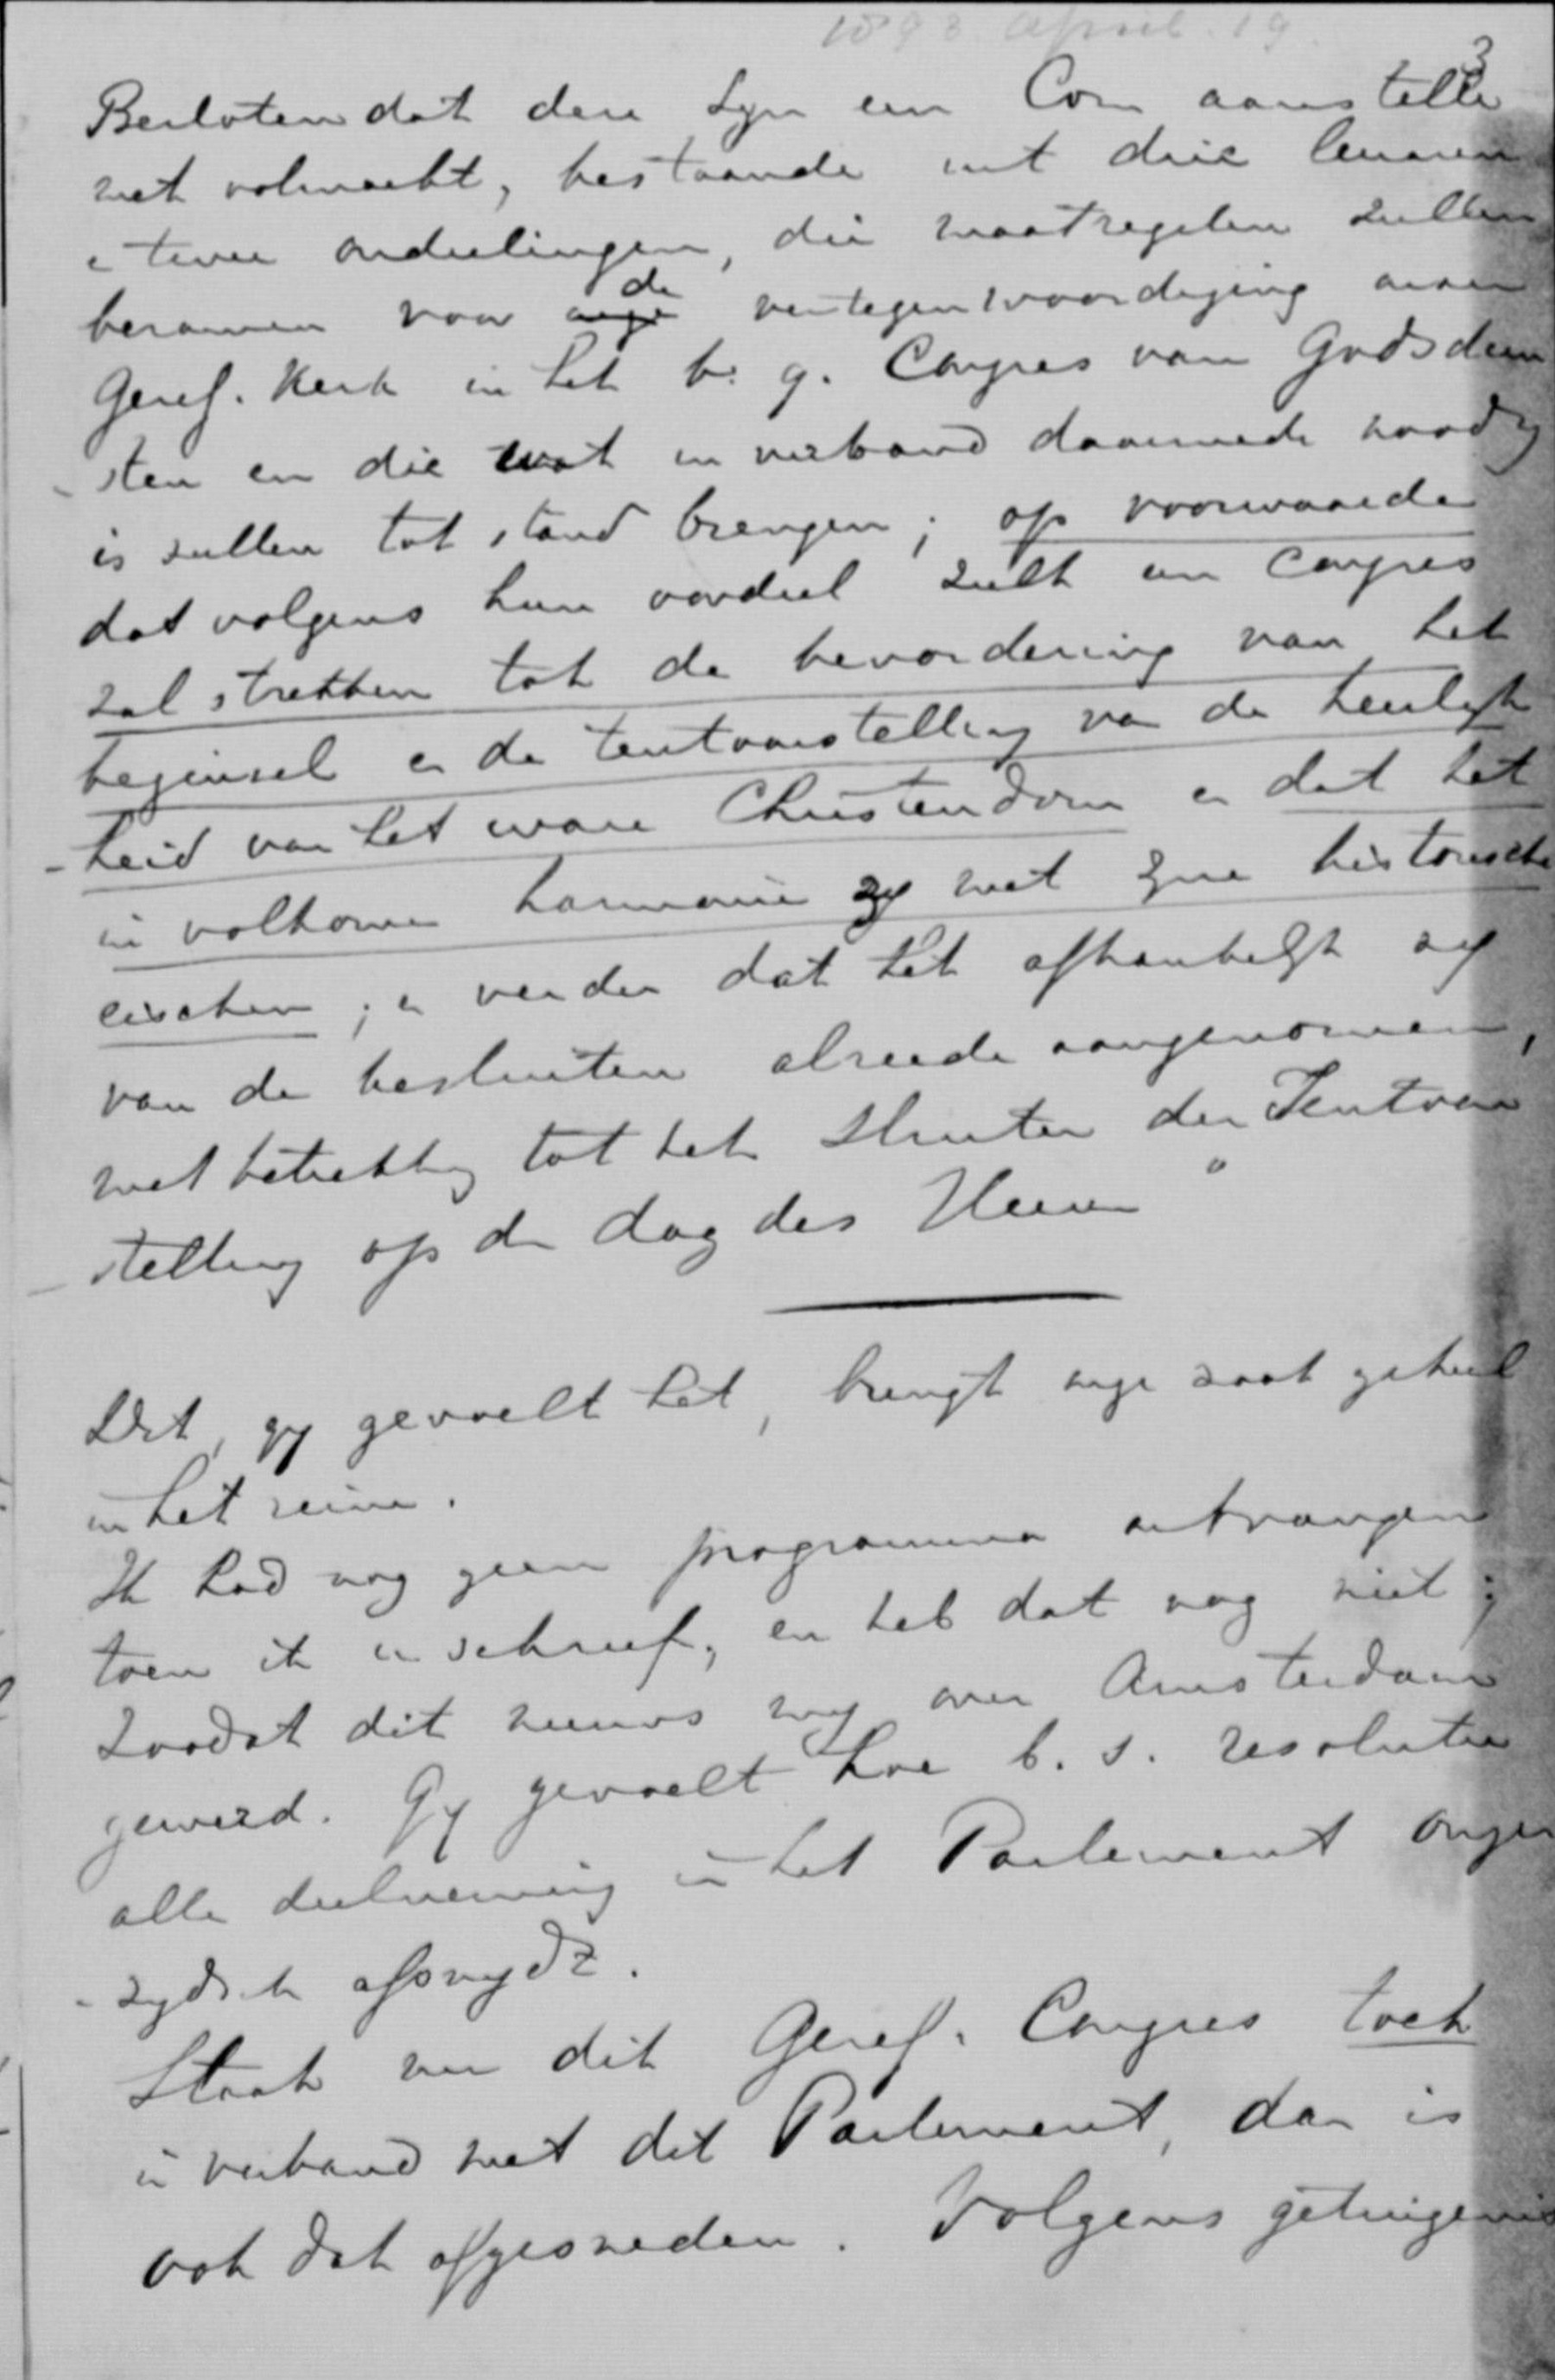 1893 April. 19.
3
Besloten dat deze Syn een Com aanstelle
met volmacht, bestaande uit drie leeraren
e twee ouderlingen, die maatregelen zullen
beramen voor onze de vertegenwoordiging onzer
Geref. Kerk in het b. g. Congres van Godsdien
sten en die wat in verband daarmede noodig
is zullen tot stand brengen; op voorwaarde
dat volgens hun oordeel zulk een Congres
zal strekken tot de bevordering van het
beginsel e de tentoonstelling va de heerlyk
heid van het ware Christendom e dat het
in volkomen harmonie zy met zyne historische
eischen; e verder dat het afhankelyk zy
van de besluiten alreede aangenomen,
met betrekking tot het sluiten der Tentoon
stelling op de dag des Heeren"
Dit, gy gevoelt het, brengt onze zaak geheel
in het reine.
Ik had nog geen programma ontvangen
toen ik u schreef, en heb dat nog niet;
zoodat dit nieuws my over Amsterdam
gewerd. Gy gevoelt hoe b. s. resolutie
alle deelneming in het Parlement onzer
zydsch afsnydt.
Staat nu dit Geref. Congres toch
in verband met dit Parlement, dan is
ook dat afgesneden. Volgens getuigenis